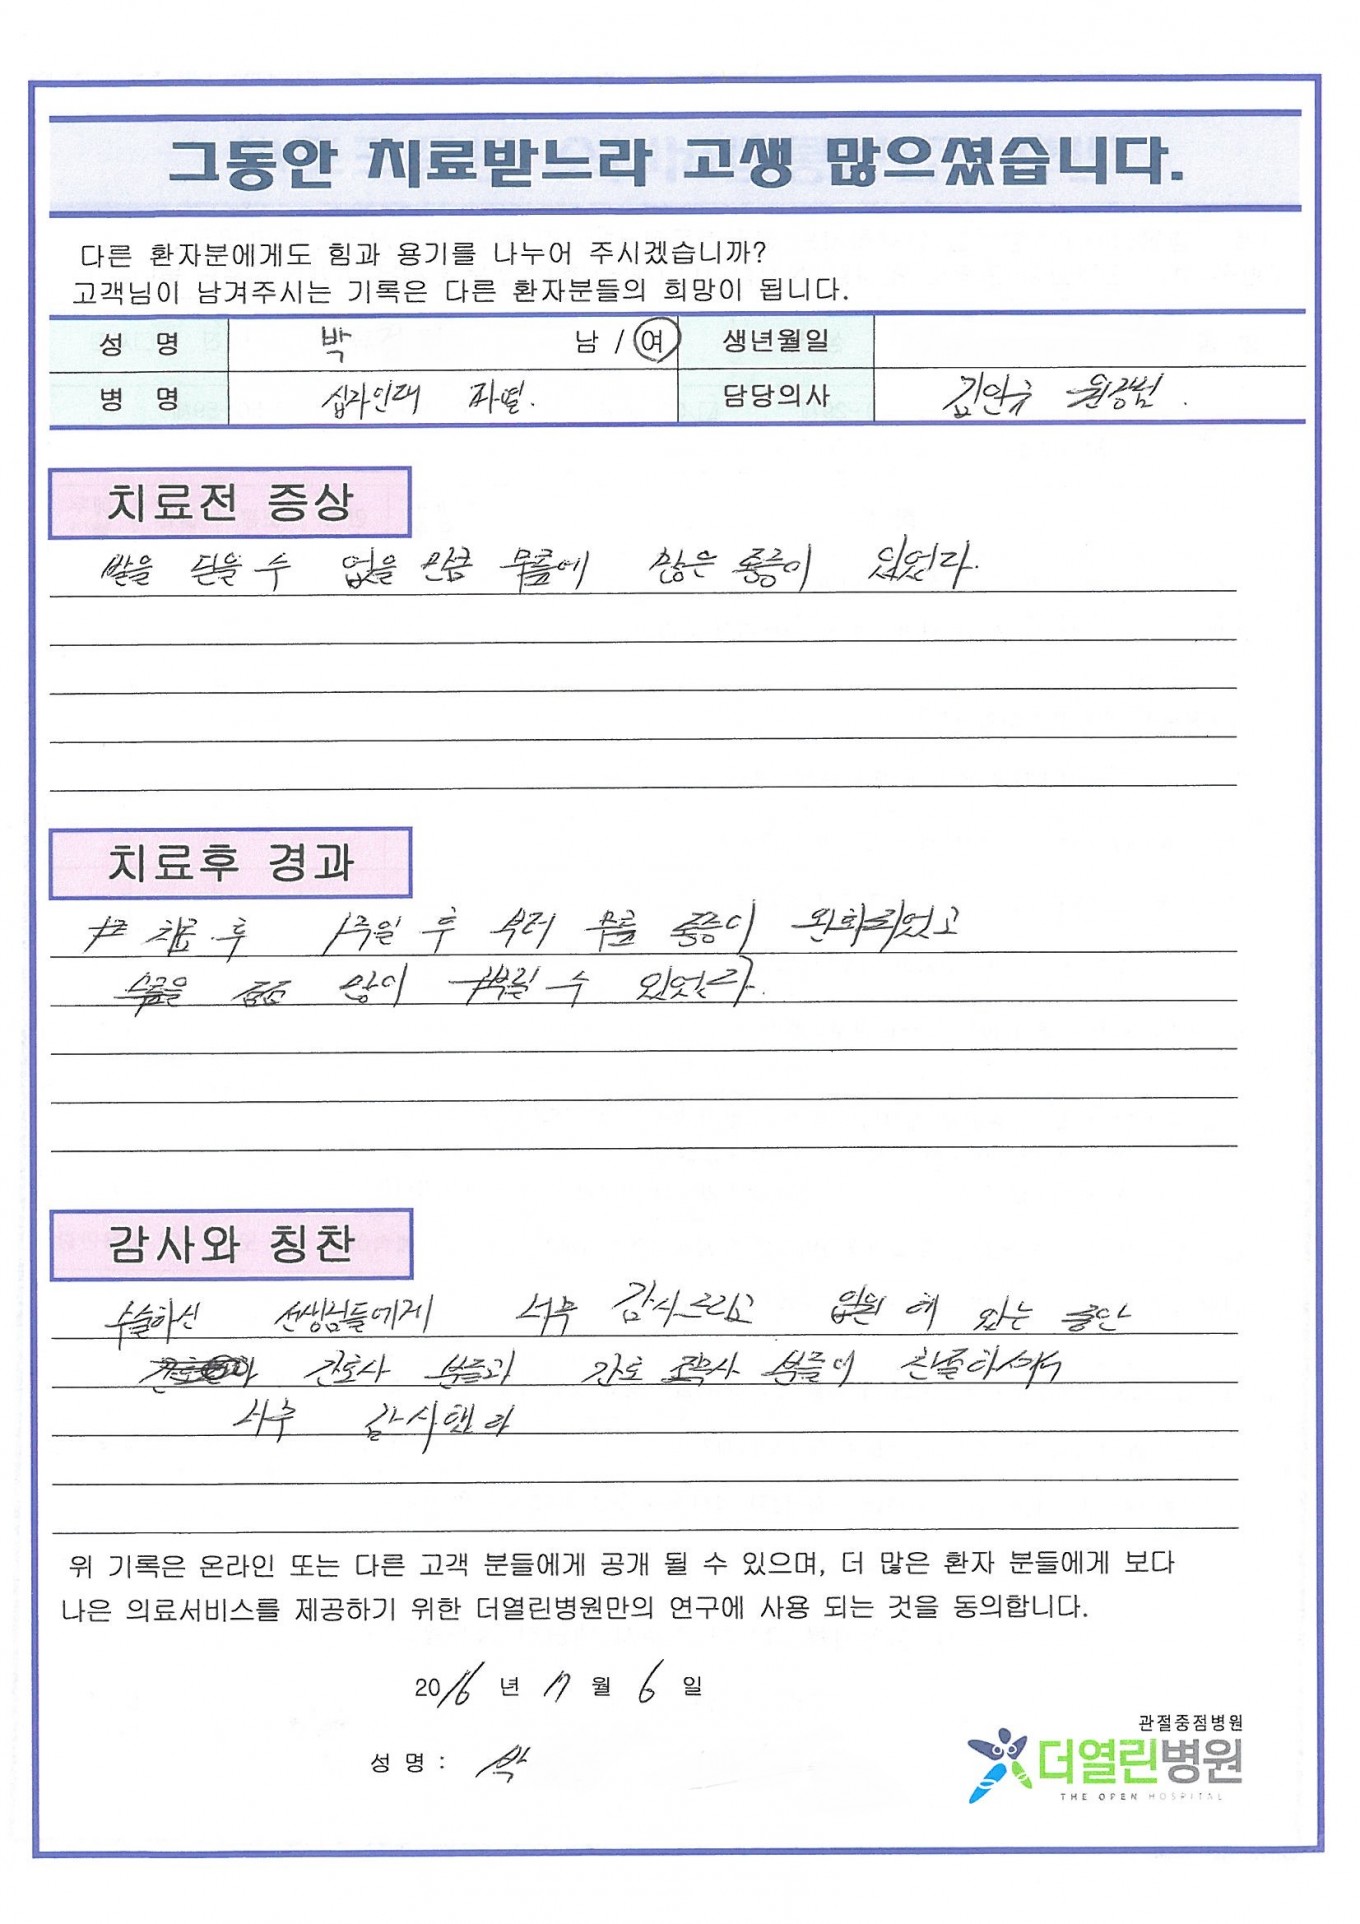 그동안 치료받느라 고생 많으셨습니다.
다른 환자분에게도 힘과 용기를 나누어 주시겠습니까?
고객님이 남겨주시는 기록은 다른 환자분들의 희망이 됩니다.
성 명 박 남 / 여 생년월일
병 명 십자인대 파열. 담당의사 김안규 원장님.
치료전 증상
발을 딛을 수 없을 만큼 무릎에 많은 통증이 있었다.
치료후 경과
치료 후 1주일 후 부터 무릎 통증이 완화되었고
무릎을 점점 많이 구부릴 수 있었다.
감사와 칭찬
수술하신 선생님들에게 너무 감사드리고 입원 해 있는 동안
간호사 분들과 간호 조무사 분들이 친절하셔서
너무 감사했다
위 기록은 온라인 또는 다른 고객 분들에게 공개 될 수 있으며, 더 많은 환자 분들에게 보다
나은 의료서비스를 제공하기 위한 더열린병원만의 연구에 사용 되는 것을 동의합니다.
2016 년 7 월 6 일
성 명 : 박
관절중점병원
더열린병원
THE OPEN HOSPITAL